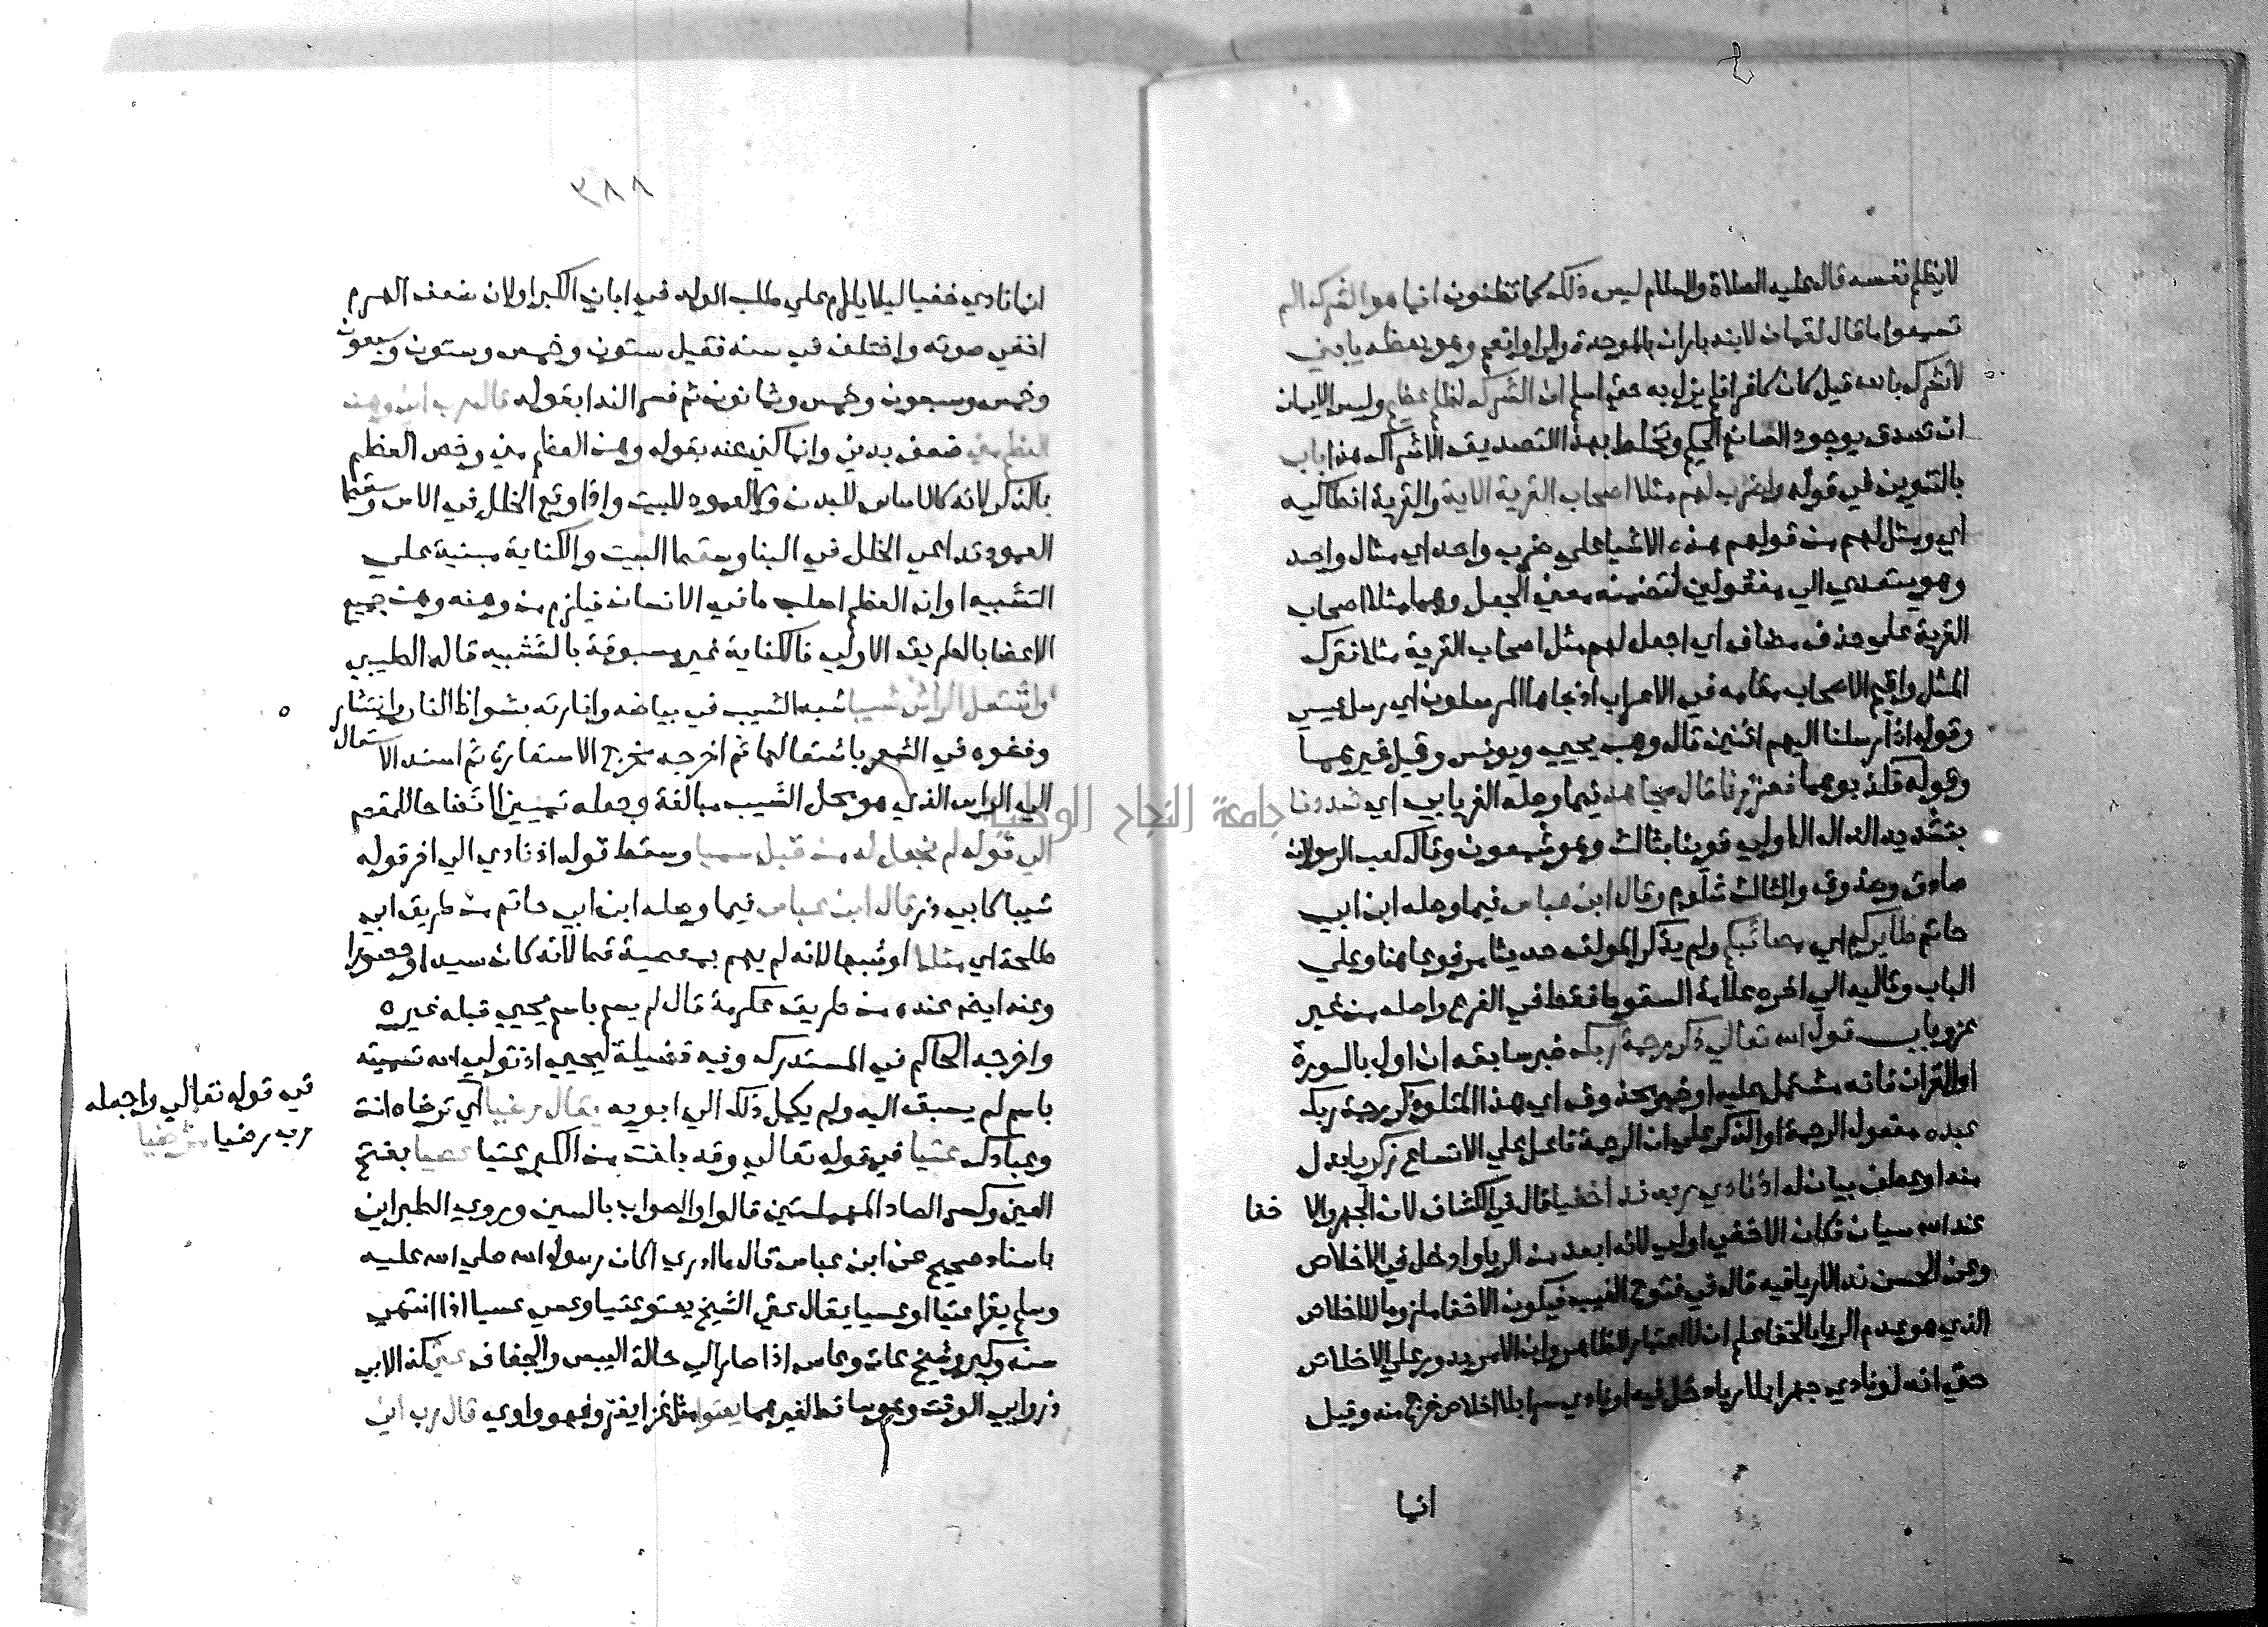 لا يظلم نفسه قال عليه الصلاة والسلام ليس ذلك كما تظنون انما هو الشرك الم
تسمعوا ما قال لقمان لابنه باران بالموحدة والراوانعم وهو يعظه يا بني
لا تشرك بالله قيل كان كافرا فلم يزل به حتى اسلم ان الشرك لظلم عظيم وليس الايمان
ان تصدق بوجود الصانع الحكيم وتخلط بهذا التصديق الاشراك هذا باب
بالتنوين في قوله واضرب لهم مثلا اصحاب القرية الاية والقرية انطاكيه
اي ومثل لهم من قولهم هذه الاشيا علي ضرب واحد اي مثال واحد
وهو يتعدي الي مفعولين لتضمنه معني الجعل وهما مثلا اصحاب
القرية علي حذف مضاف اي اجعل لهم مثل اصحاب القرية مثلا فترك
المثل واقيم الاصحاب مقامه في الاعراب اذ جاها المرسلون اي رسل عيسي
وقوله اذ ارسلنا اليهم اثنين قال وهب يحيي ويونس وقيل غيرهما
وقوله فكذبوهما فعززنا قال مجاهد فيما وصله الفريابي اي شددنا
بتشديد الدال الاولي قوينا بثالث وهو شمعون وقال كعب الرسولان
صادق وصدوق والثالث شلوم وقال ابن عباس فيما وصله ابن ابي
حاتم طايركم اي مصائبكم ولم يذكر المولف حديثا مرفوعا هنا وعلي
الباب وتاليه الي اخره علامة السقوط فقط في الفرع واصله من غير
عزو باب قول الله تعالي ذكر رحمة ربك خبر سابقه ان اول بالسورة
او القران فانه مشتمل عليه او خبر محذوف اي هذا المتلو ذكر رحمة ربك
عبده مفعول الرحمة او الذكر علي ان الرحمة فاعل علي الاتساع زكريا بدل
منه او عطف بيان له اذ نادي ربه ندا خفيا قال في الكشاف لان الجهر والا خفا
عند الله سيان فكان الاخفي اولي لانه ابعد من الريا وادخل في الاخلاص
وعن الحسن ندا لا ريا فيه قال في فتوح الغيب فيكون الاخفا ملزوما للاخلاص
الذي هو عدم الريا بالخفا علم ان لا اعتبار للظاهر وان الامر يدور علي الاخلاص
حتي انه لو نادي جهرا بلا ريا دخل فيه او نادي سرا بلا اخلاص خرج منه وقيل
انما
٣٨٨
انما نادي خفيا ليلا يلام علي طلب الولد في ابان الكبر او لان ضعف الهرم
اخفي صوته واختلف في سنه فقيل ستون وخمس وستون وسبعون
وخمس وسبعون وخمس وثمانون ثم فسر الندا بقوله قال رب اني وهن
العظم مني ضعف بدني وانما كني عنه بقوله وهن العظم مني وخص العظم
بالذكر لانه كالاساس للبدن وكالعمود للبيت واذا وقع الخلل في الاس وسقط
العمود تداعي الخلل في البنا وسقط البيت والكناية مبنية علي
التشبيه او ان العظم اصلب ما في الانسان فيلزم من وهنه وهن جميع
الاعضا بالطريق الاولي فالكناية غير مسبوقة بالتشبيه قاله الطيبي
واشتعل الراس شيبا شبه الشيب في بياضه وانارته بشواظ النار وانتشار
وفشوه في الشعر باشتعالها ثم اخرجه مخرج الاستعارة ثم اسند الاشتعال
الي الراس الذي هو محل الشيب مبالغة وجعله تمييزا ايضاحا للمقصد
الي قوله لم نجعل له من قبل سميا وسقط قوله اذ نادي الي اخر قوله
شيبا لابي ذر قال ابن عباس فيما وصله ابن ابي حاتم من طريق ابن ابي
طلحة اي مثلا او شبها لانه لم يهم بمعصية قط لانه كان سيدا وحصورا
وعند ايضا عنده من طريق عكرمة قال لم يسم باسم يحيي قبله غيره
واخرجه الحاكم في المستدرك وفيه فضيلة ليحيي اذ تولي الله تسميته
باسم لم يسبق اليه ولم يكل ذلك الي ابويه يقال رضيا اي ترضاه انت
وعبادك عتيا في قوله تعالي وقد بلغت من الكبر عتيا عصيا بفتح
في قوله تعالي واجعله
رب رضيا مرضيا
العين وكسر الصاد المهملتين قالوا والصواب بالسين وروي الطبراني
باسناد صحيح عن ابن عباس قال ما ادري اكان رسول الله صلي الله عليه
وسلم يقرا عتيا او عسيا يقال عتي الشيخ يعتو عتيا وعسي عسيا اذا انتهي
سنه وكبر وشيخ عات وعاس اذا صار الي حالة اليبس والجفاف عتي كذا لابي
ذر وابي الوقت وهو ساقط لغيرهما يعتو مثل غزا يغزو فهو واوي قال رب اني